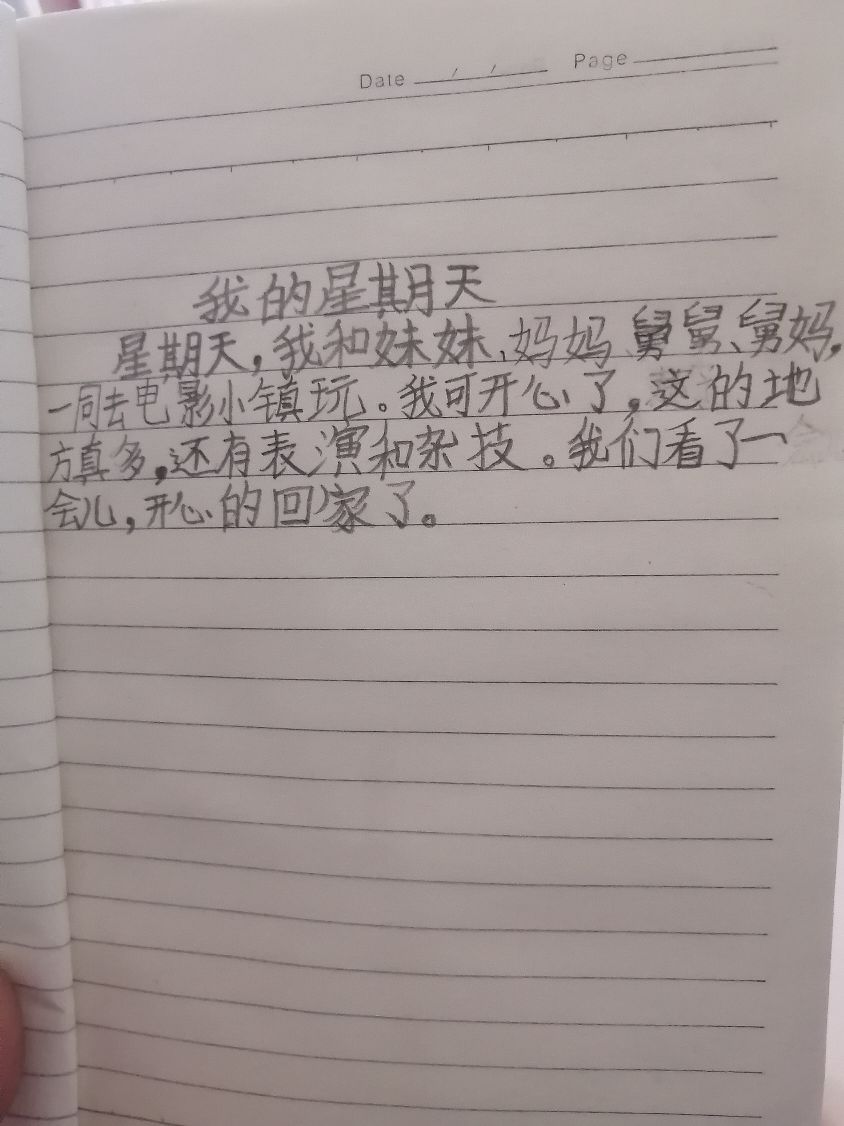 Date / / Page
我的星期天
星期天，我和妹妹、妈妈、舅舅、舅妈，
一同去电影小镇玩。我可开心了，这的地
方真多，还有表演和杂技。我们看了一
会儿，开心的回家了。